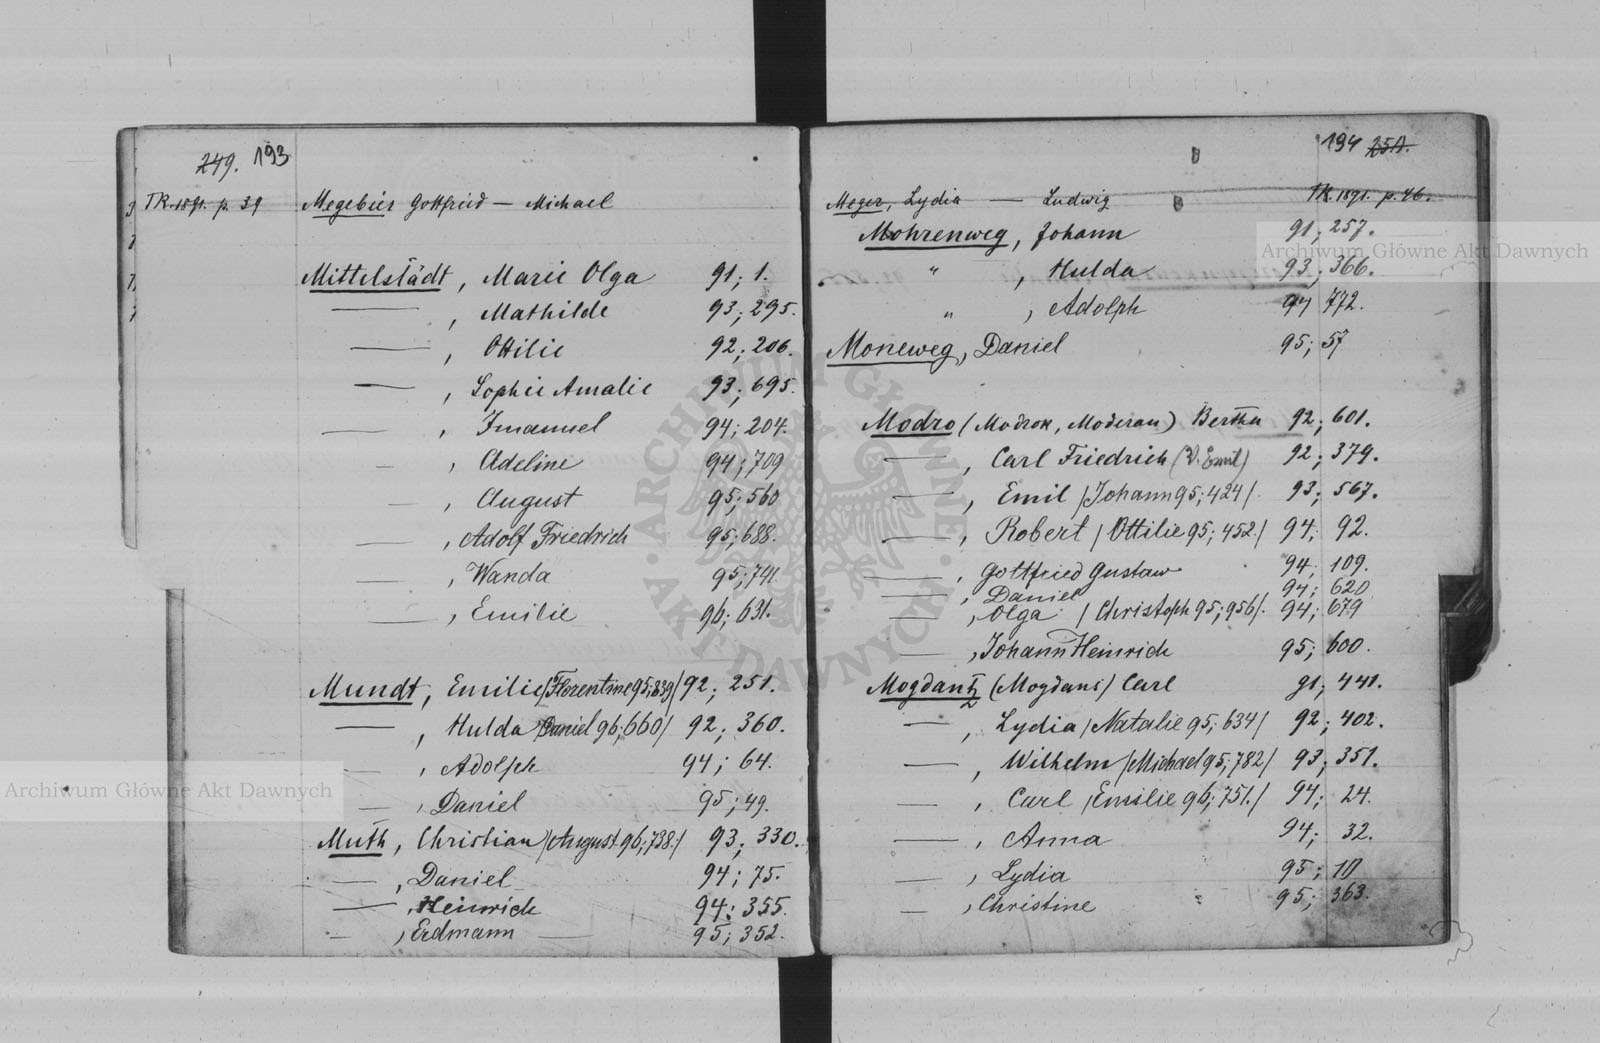 249. 193
TK. 1891. p. 39 Megebier Gottfried — Michael
Mittelstädt, Marie Olga 91; 1.
—, Mathilde 93; 295.
—, Ottilie 92; 206.
—, Sophie Amalie 93; 695.
—, Imanuel 94; 204.
—, Adeline 94; 709
—, August 95; 560
—, Adolf Friedrich 95; 688.
—, Wanda 95; 741.
—, Emilie 96; 631.
Mundt, Emilie /Florentine 95; 839/ 92; 251.
—, Hulda /Daniel 96; 660/ 92; 360.
—, Adolph 94; 64.
—, Daniel 95; 49.
Muth, Christian /August 96; 738./ 93; 330.
—, Daniel 94; 75.
—, Heinrich 94; 355.
—, Erdmann — 95; 352.
194 250.
Meger, Lydia — Ludwig TK. 1891. p. 46.
Mohrenweg, Johann 91; 257.
" , Hulda 93; 366.
" , Adolph 94 772.
Moneweg, Daniel 95; 57
Modro (Modrok, Moderau) Bertha 92; 601.
—, Carl Friedrich (V. Emil) 92; 379.
—, Emil /Johann 95; 424/. 93; 567.
—, Robert /Ottilie 95; 452./ 94; 92.
—, Gottfried Gustaw 94; 109.
—, Daniel 94; 620
—, Olga /Christoph 95; 956/. 94; 679
—, Johann Heinrich 95; 600.
Mogdantz (Mogdans) Carl 91; 441.
—, Lydia /Natalie 95; 634/ 92; 402.
—, Wilhelm /Michael 95; 782/ 93; 351.
—, Carl /Emilie 96; 751./ 94; 24.
—, Anna 94; 32.
—, Lydia 95; 10
—, Christine 95; 363.
Archiwum Główne Akt Dawnych
Archiwum Główne Akt Dawnych
ARCHIWUM GŁÓWNE AKT DAWNYCH